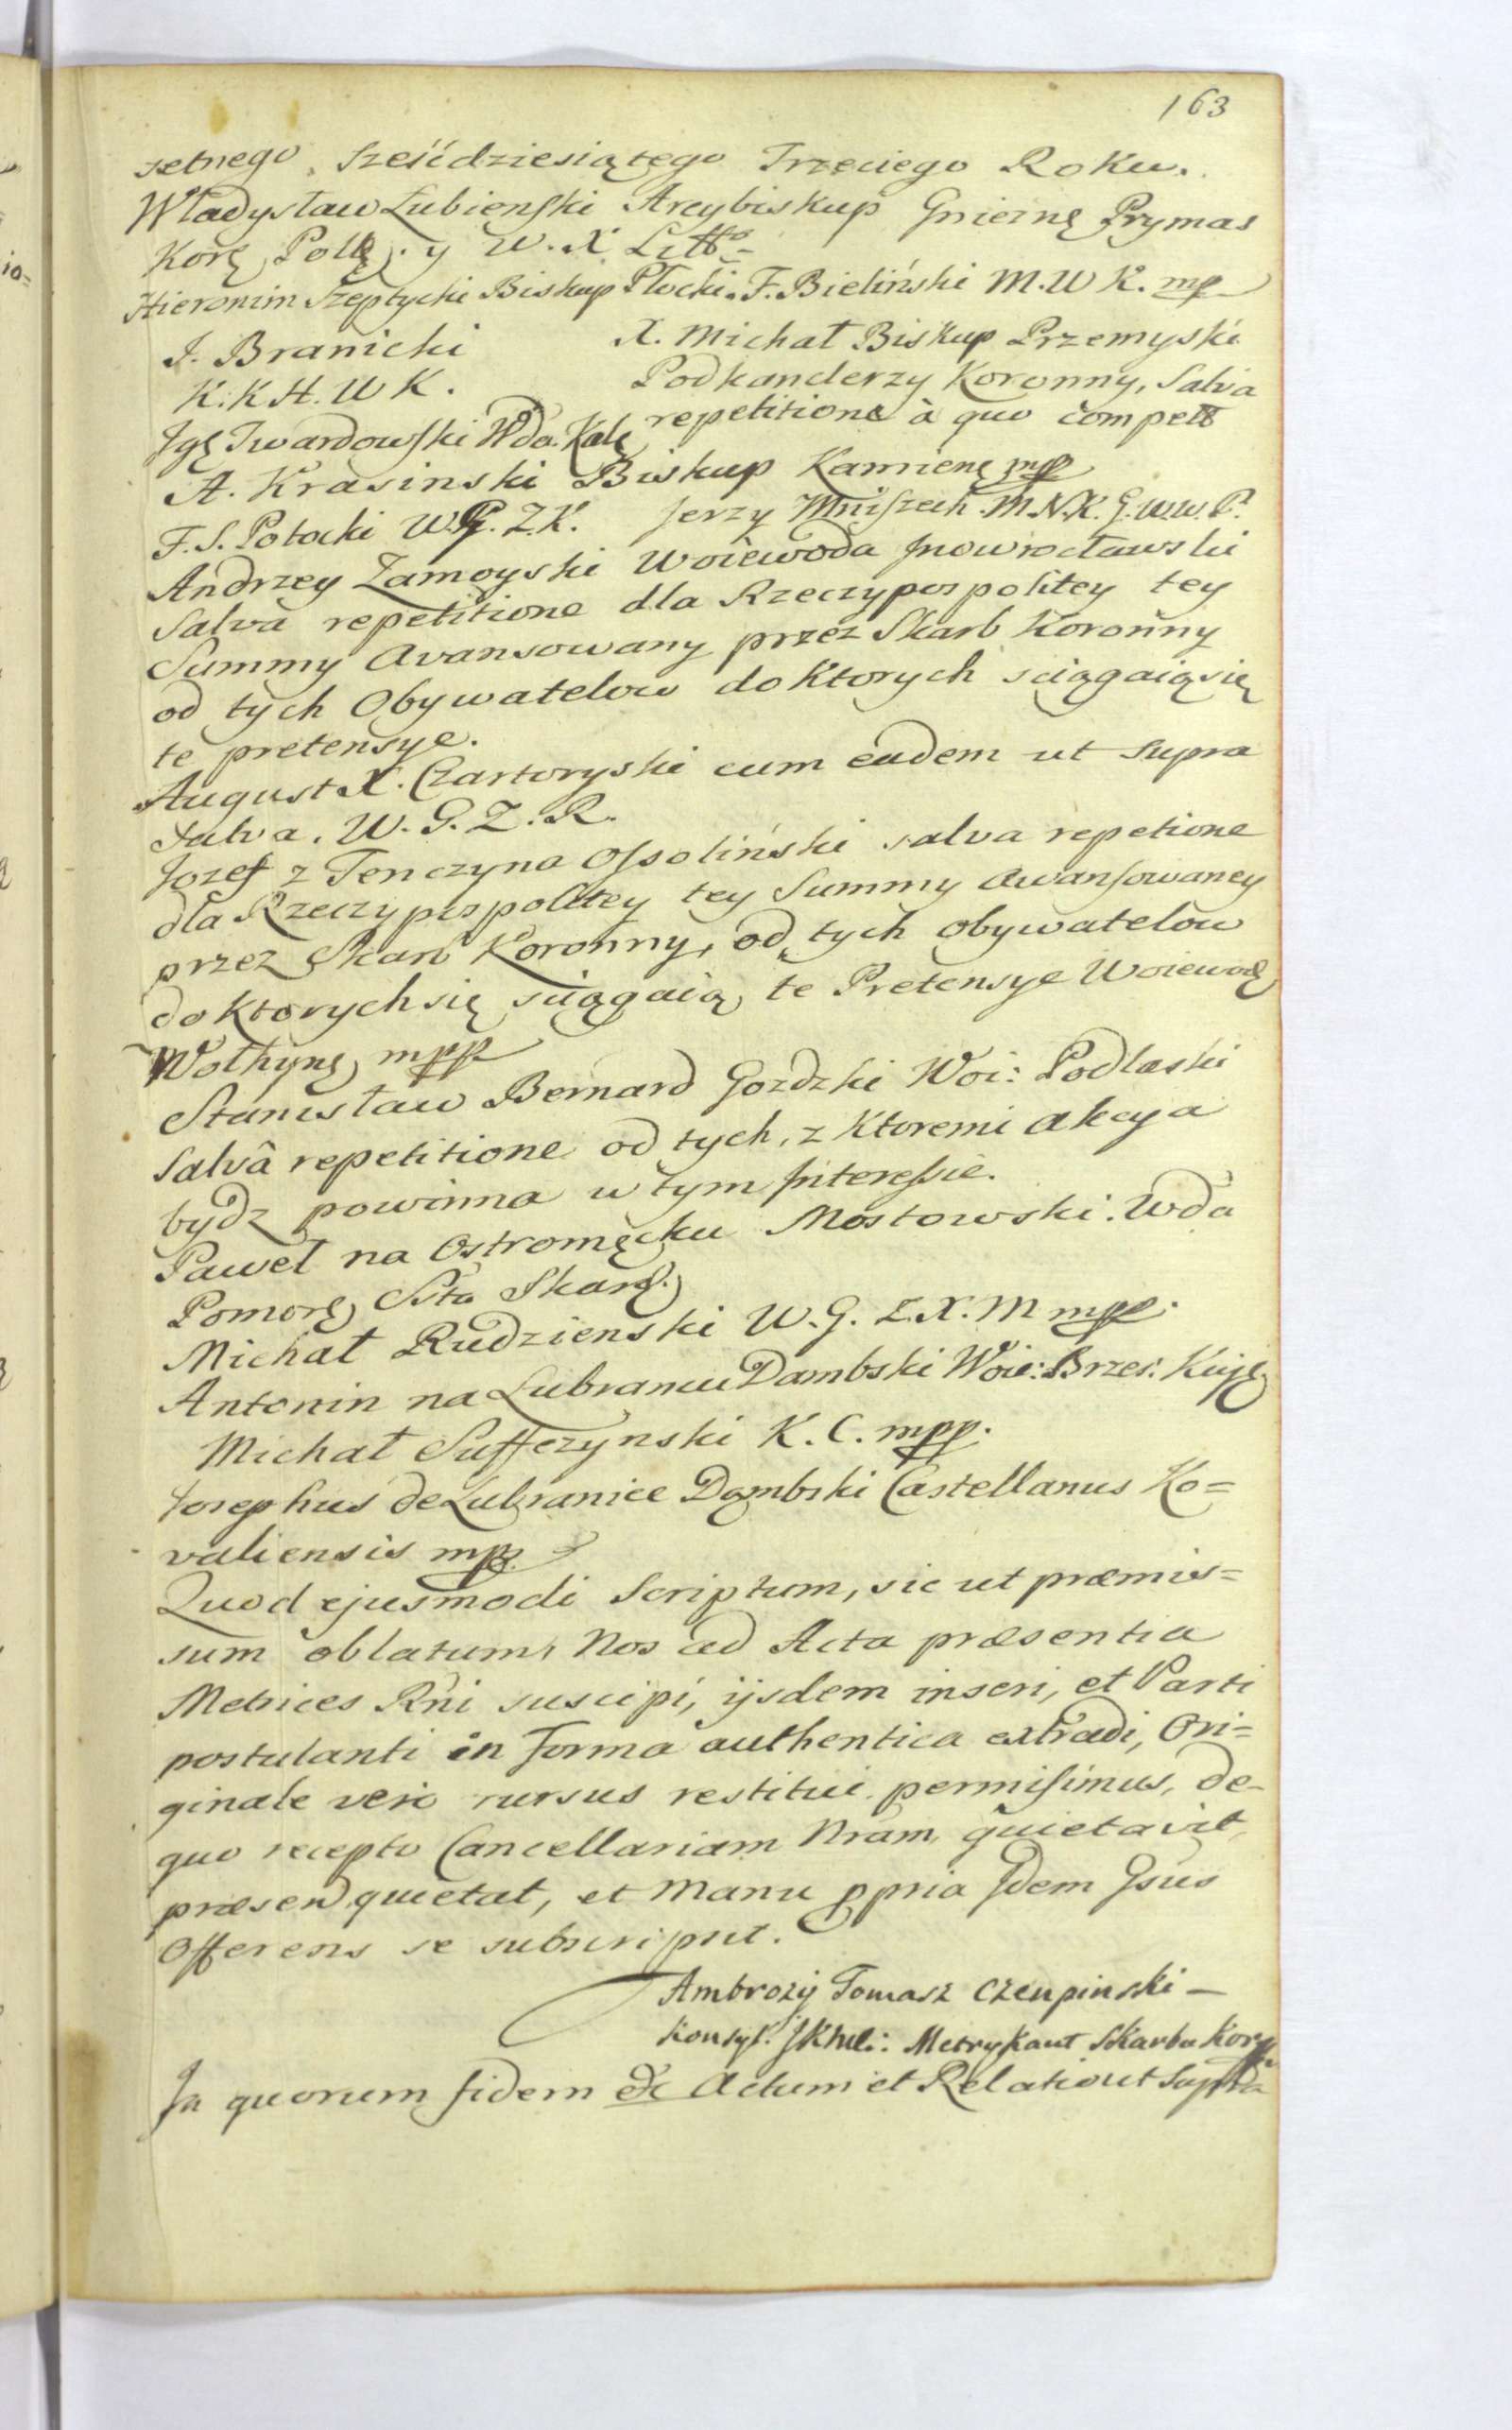 163
setnego, sześćdziesiątego Trzeciego Roku.
Władysław Łubieński Arcybiskup Gnieznę Prymas
Korę Polę. y W. X. Litto=
Hieronim Szeptycki Biskup Płocki. F. Bieliński M. W K. mp
J. Branicki
K. K H. W K.
X. Michał Biskup Przemyski
Podkanclerzy Koronny, Salva
repetitione à quo compett
Igę Twardowski Wda. Kalę
A. Krasinski Biskup Kamienę mp
F. S. Potocki W. G. Z. K. Jerzy Mniszech. M. N. K. G. W. W. P.
Andrzey Zamoyski Woiewoda Jnowrocławski
Salvà repetitione dla Rzeczypospolitey tey
Summy Avansowany przez Skarb Koronny
od tych Obywatelow do Ktorych sciągaią się
te pretensye.
August X. Czartoryski cum eadem ut Supra
Salva. W. G. Z. R.
Jozef z Tenczyna Ossoliński salva repetione
dla Rzeczypospolitey tey Summy Awansowaney
przez Skarb Koronny, od tych obywatelow
do Ktorych się sciągaią te Pretensye Woiewodę
Wołhynę mpp
Stanisław Bernard Gozdzki Woi: Podlaski
Salvâ repetitione od tych, z Ktoremi akcya
bydz powinna w tym Interessie.
Paweł na Ostromęcku Mostowski. Wda
Pomorę Stta Skarę.
Michał Rudzienski W. G. Z. X. M mpp.
Antonin na Lubrancu Dambski Woie: Brzes: Kuję
Michał Suffczynski K. C. mpp.
Josephus de Lubranice Dąmbski Castellanus Ko=
valiensis mp.
Quod ejusmodi Scriptum, sic ut præmis=
sum oblatum, Nos ad Acta præsentia
Metrices Rni suscipi, ijsdem inseri, et Parti
postulanti in forma authentica extradi, Ori=
ginale vero rursus restitui permisimus, de-
quo recepto Cancellariam Nram quietavit,
præsen quietat, et Manu ppria Idem Gsus
Offerens se subscripsit.
Ambroży Tomasz Czenpinski –
Konsyl. JKMci: Metrykant Skarbu Kor
In quorum fidem &c Actum et Relatio ut Supra